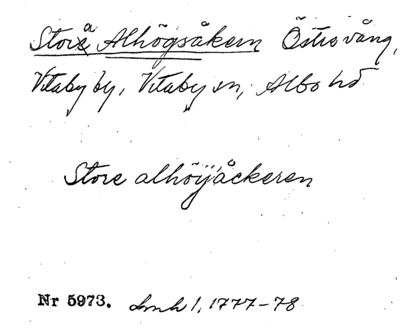 Storeå Alhögsåkern Östrevång,
Vitaby by, Vitaby sn, Albo hd
Store alhöijåckeren
Nr 5973. Lmh 1, 1777-78